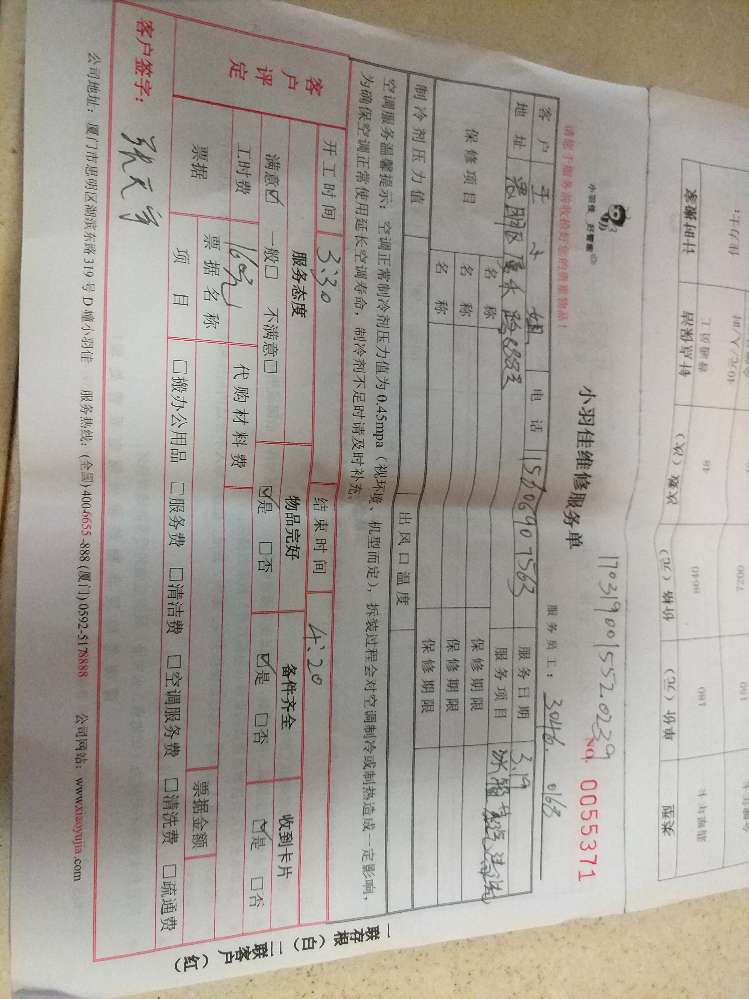 小羽佳 好管家
小羽佳维修服务单
1703190015520239
NO. 0055371
请您于服务前收捡好您的贵重物品!
服务员工: 3046. 0163
客户 王 小 姐 电话 15606907563 服务日期 3.19
地址 思明区 服务项目 冰箱蒸汽清洗
保修项目 名称 保修期限
名称 保修期限
名称 保修期限
制冷剂压力值 出风口温度
空调服务温馨提示:空调正常制冷剂压力值为0.45mpa(视环境、机型而定),拆装过程会对空调制冷或制热造成一定影响,
为确保空调正常使用延长空调寿命,制冷剂不足时请及时补充。
开工时间 3:30 结束时间 4:20
客户评定 服务态度 物品完好 备件齐全 收到卡片
满意☑ 一般□ 不满意□ ☑是 □否 ☑是 □否 ☑是 □否
工时费 160元 代购材料费
票据 票据名称 票据金额
项目 □搬办公用品 □服务费 □清洁费 □空调服务费 □清洗费 □疏通费
客户签字:
公司地址:厦门市思明区湖滨东路319号D幢小羽佳 服务热线:(全国)4004655-888 (厦门)0592-5178888 公司网站:www.xiaoyujia.com
一联存根(白) 二联客户(红)